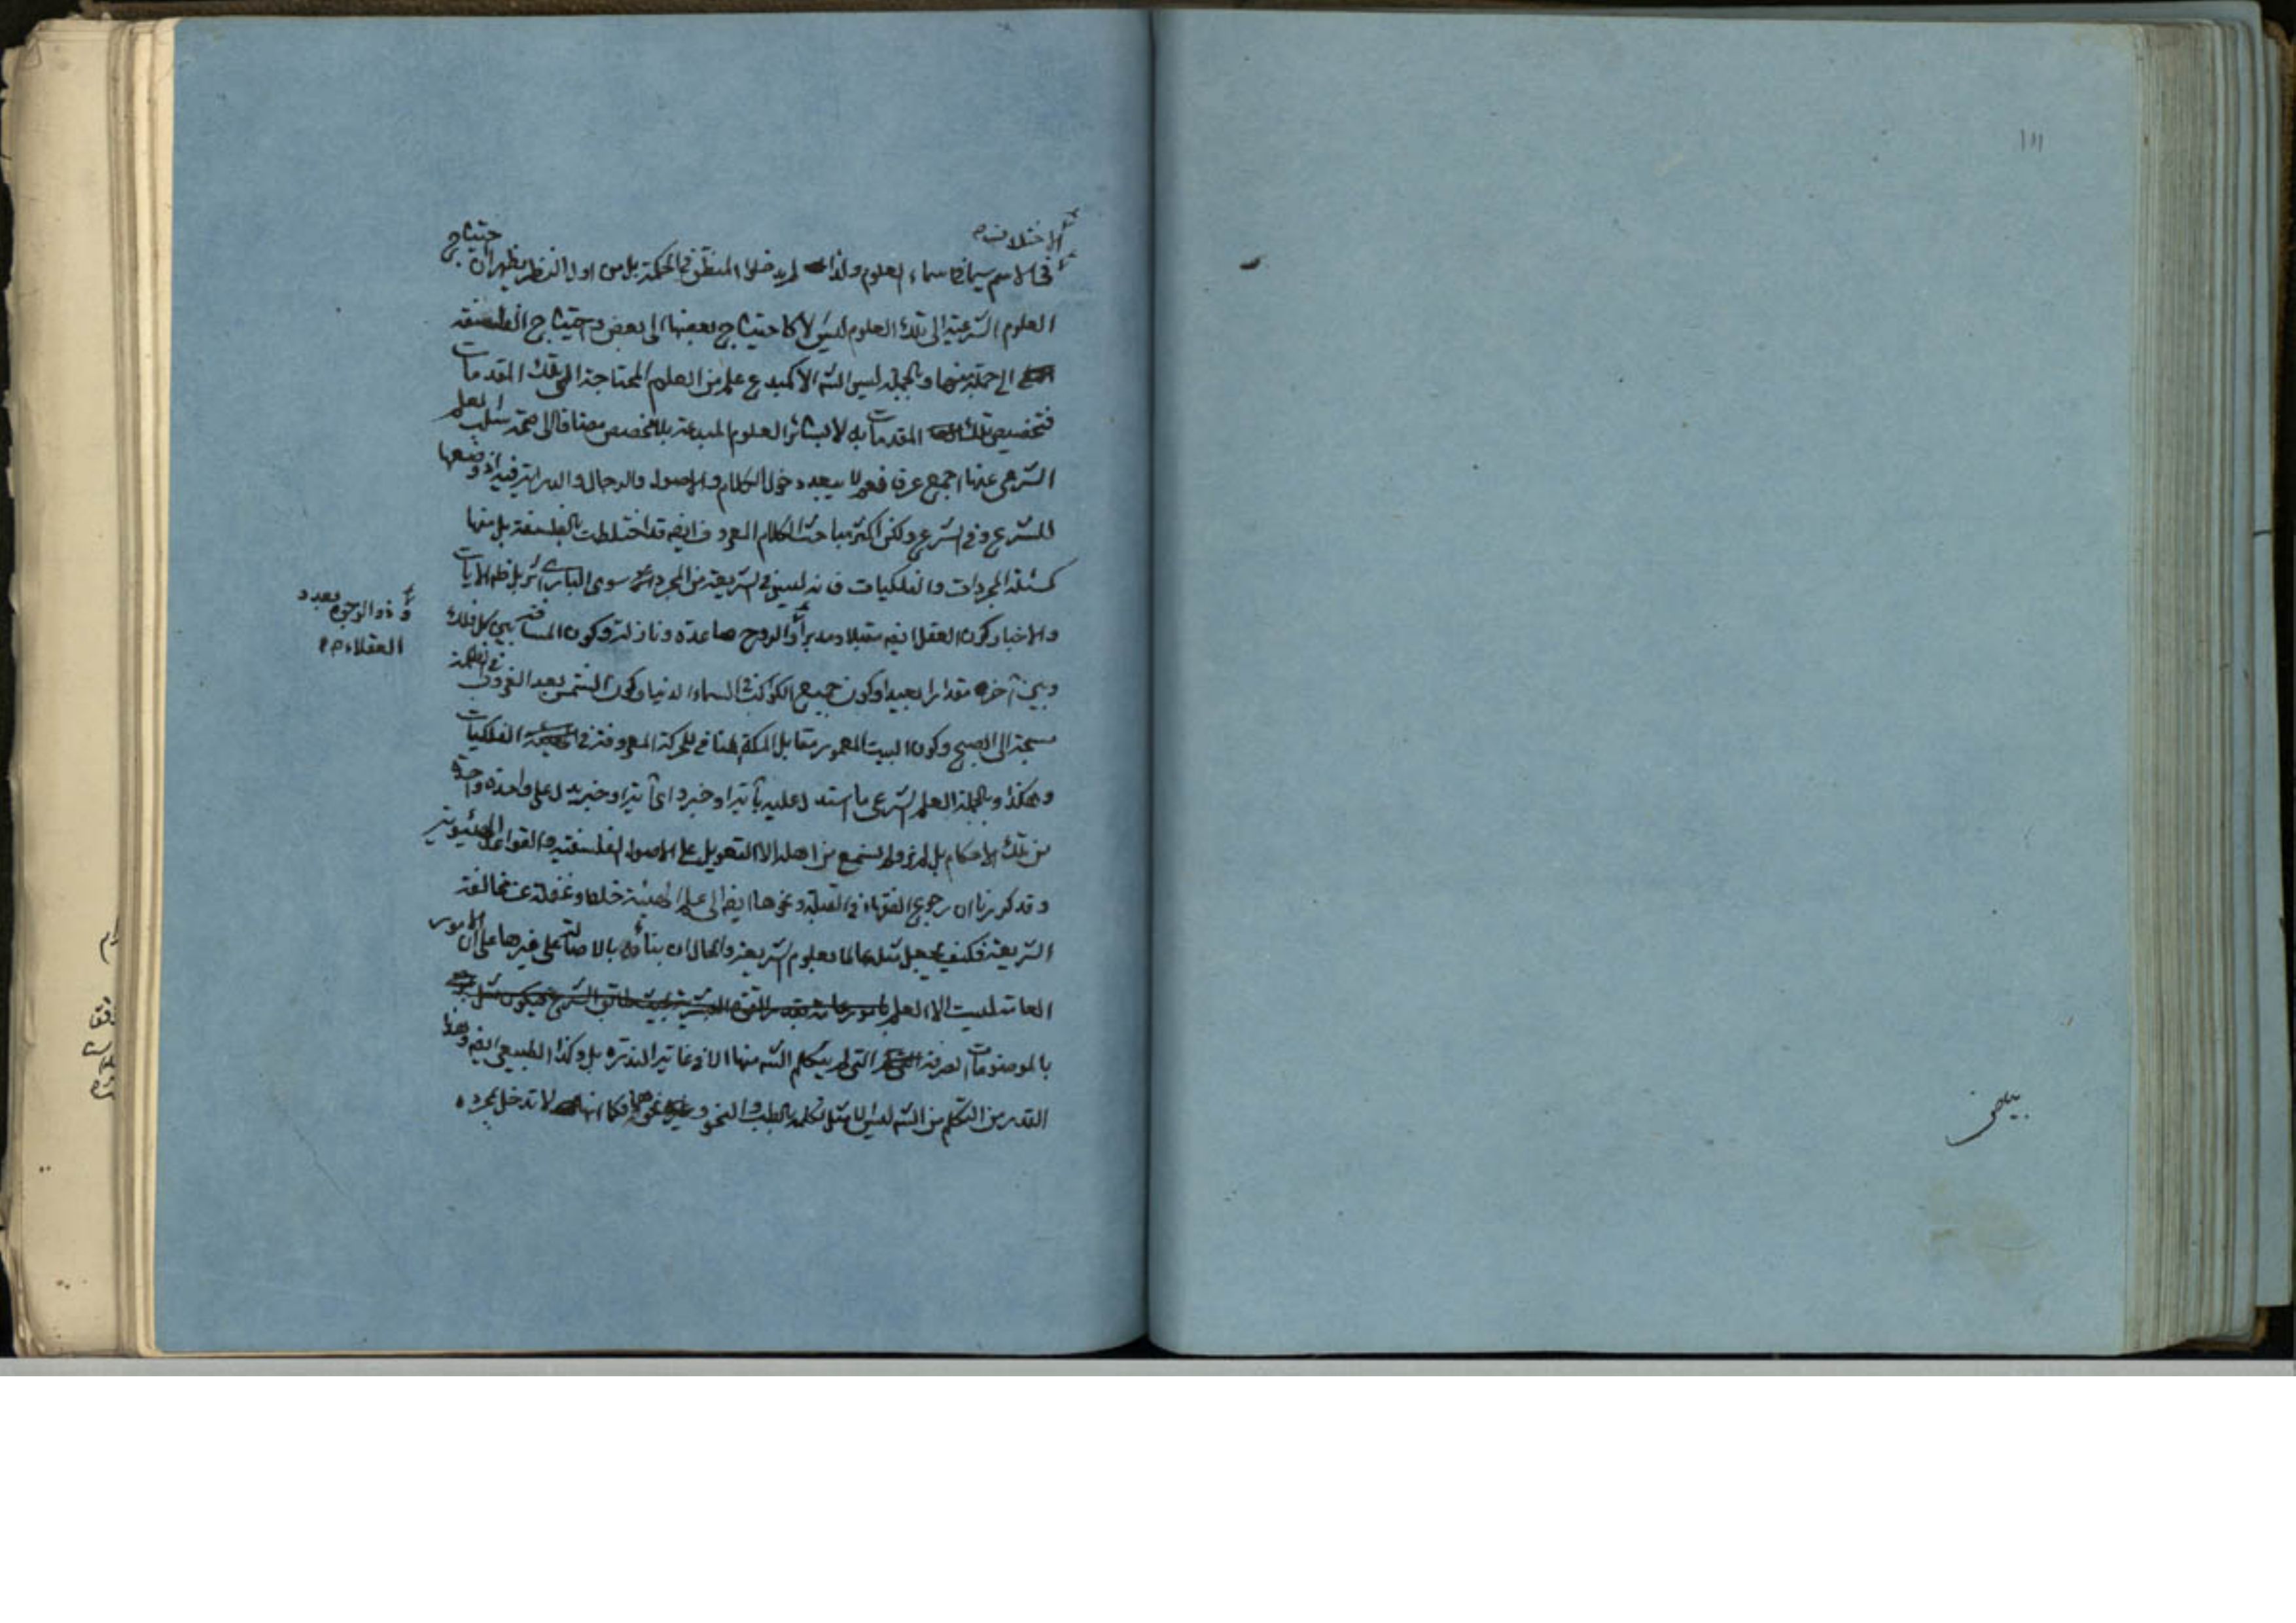 ١١١
بياض
الاختلاف
في الاسم سيما في اسماء العلوم ولذا لم يدخلوا المنطق في الحكمة بل من اول النظر يظهر ان احتياج
العلوم الشرعية الى تلك العلوم ليس الا كاحتياج بعضها الى بعض واحتياج الفلسفة
الى جملة منها وبالجملة ليس الشرع الا كمبدع علم من العلوم المحتاجة الى تلك المقدمات
فتخصيص تلك المقدمات به لا بسائر العلوم المبدعة بلا مخصص مضافا الى صحة سلب العلم
الشرعي عنها اجمع عرفا فعم لا يبعد دخول الكلام والاصول والرجال والدراية فيه اذ وضعها
للشرع وفي الشرع ولكن اكثر مباحث الكلام المعروف ايضا قد اختلطت بالفلسفة بل منها
كمسئلة المجردات والفلكيات فانه ليس في الشريعة من المجرد سوى الباري بل ظاهر الايات
والاخبار كون العقل ايضا مقبلا ومدبرا والروح صاعدة ونازلة وكون المسافة بين كل فلك
وذو الوجوه بعدد
العقلاء
وبين اخره مقدارا بعيدا وكون جميع الكواكب في السماء الدنيا وكون الشمس بعد الغروب في
مسبحة الى الصبح وكون البيت المعمور مقابل المكة المنافي للحركة المعروفة في الفلكيات
وهكذا وبالجملة العلم الشرعي ما استدل عليه بآية او خبر واي آية او خبر يدل على واحدة واحدة
من تلك الاحكام بل لم نر ولم نسمع من اهله الا التعويل على الاصول الفلسفية والقواعد
وقد كررنا ان رجوع الفقهاء في القبلة ونحوها ايضا الى علم الهيئة خطا وغفلة عن مخالفة
الشريعة فكيف يجعل مثله عالما بعلوم الشريعة والحال ان بنائه بالاصالة على غيرها على ان الامور
العامة ليست الا العلم
بالموضوعات الصرفة التي لم يتكلم الشرع منها الا في غاية الندرة بل وكذا الطبيعي ايضا وهذا
القدر من التكلم من الشرع ليس الا مثل تكلمه بالطب والنحو ونحوها فكما انها لا تدخل بمجرده